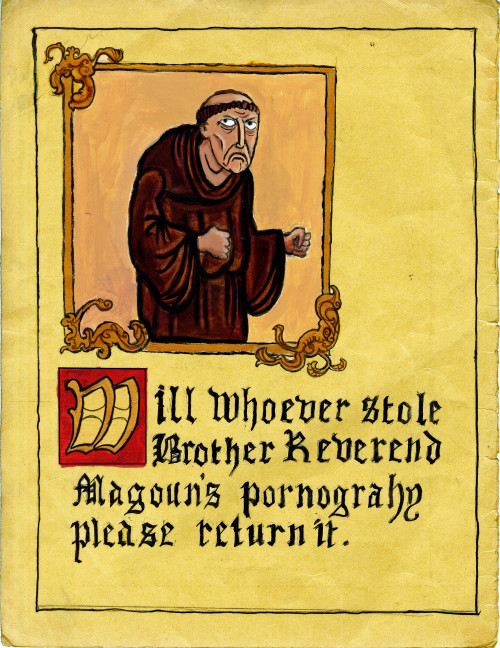 Will whoever stole
Brother Reverend
Magoun's pornograhy
please return it.